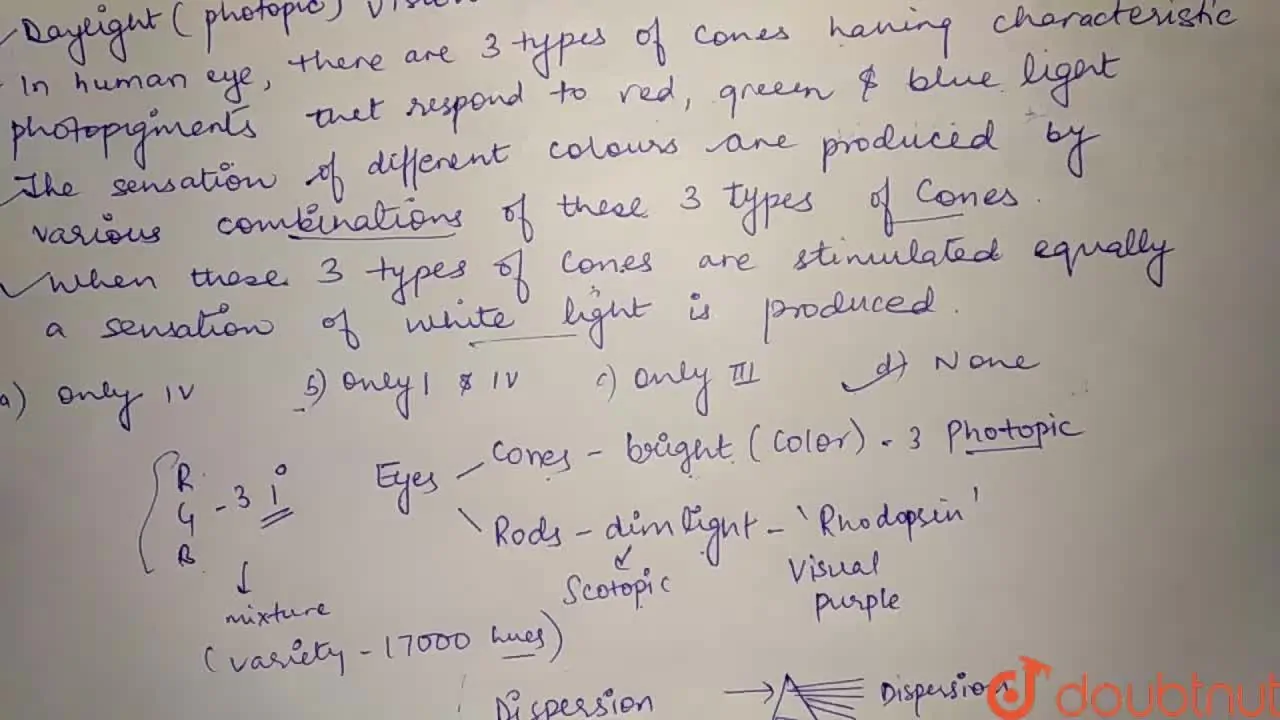 Daylight (photopic) vision
In human eye, there are 3 types of cones having characteristic
photopigments that respond to red, green & blue light
The sensation of different colours are produced by
various combinations of these 3 types of Cones.
When these 3 types of cones are stimulated equally
a sensation of white light is produced.
a) Only IV b) Only I & IV c) Only III d) None
Eyes
Cones - bright (Color) - 3 Photopic
Rods - dim light - 'Rhodopsin'
Scotopic
Visual
purple
R
G - 3
B
mixture
(variety - 17000 hues)
Dispersion
Dispersion
doubtnut